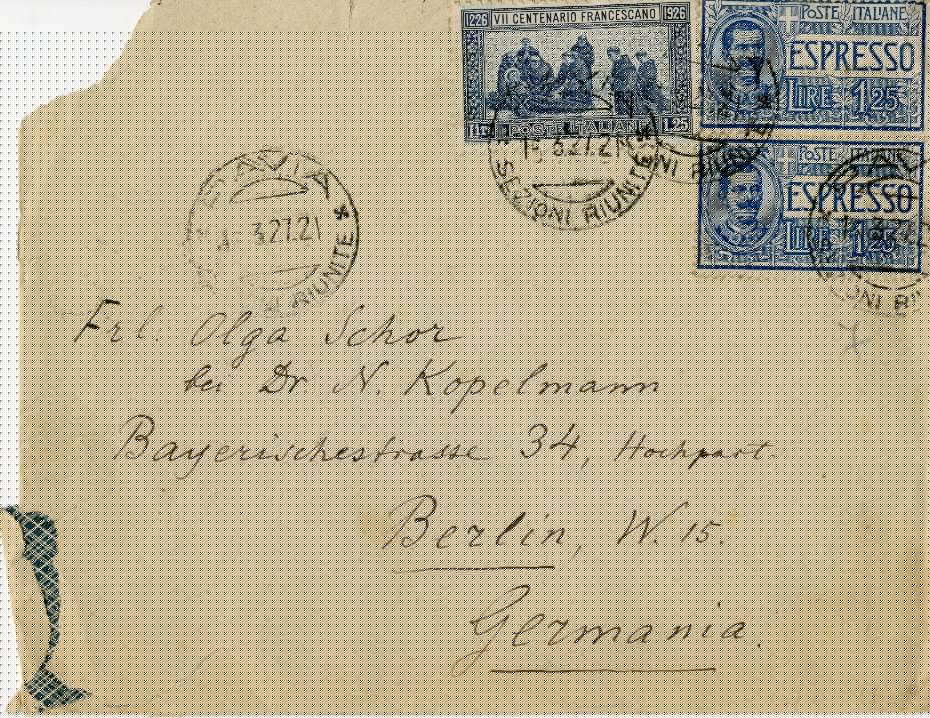 1226 VII CENTENARIO FRANCESCANO 1926
POSTE ITALIANE 1.25
POSTE ITALIANE
ESPRESSO
LIRE 1.25
POSTE ITALIANE
ESPRESSO
LIRE 1.25
SEZIONI RIUNITE
3.27.21
RIUNITE
Frl. Olga Schor
bei Dr N. Kopelmann
Bayerischestrasse 34, Hochpart.
Berlin, W. 15.
Germania.